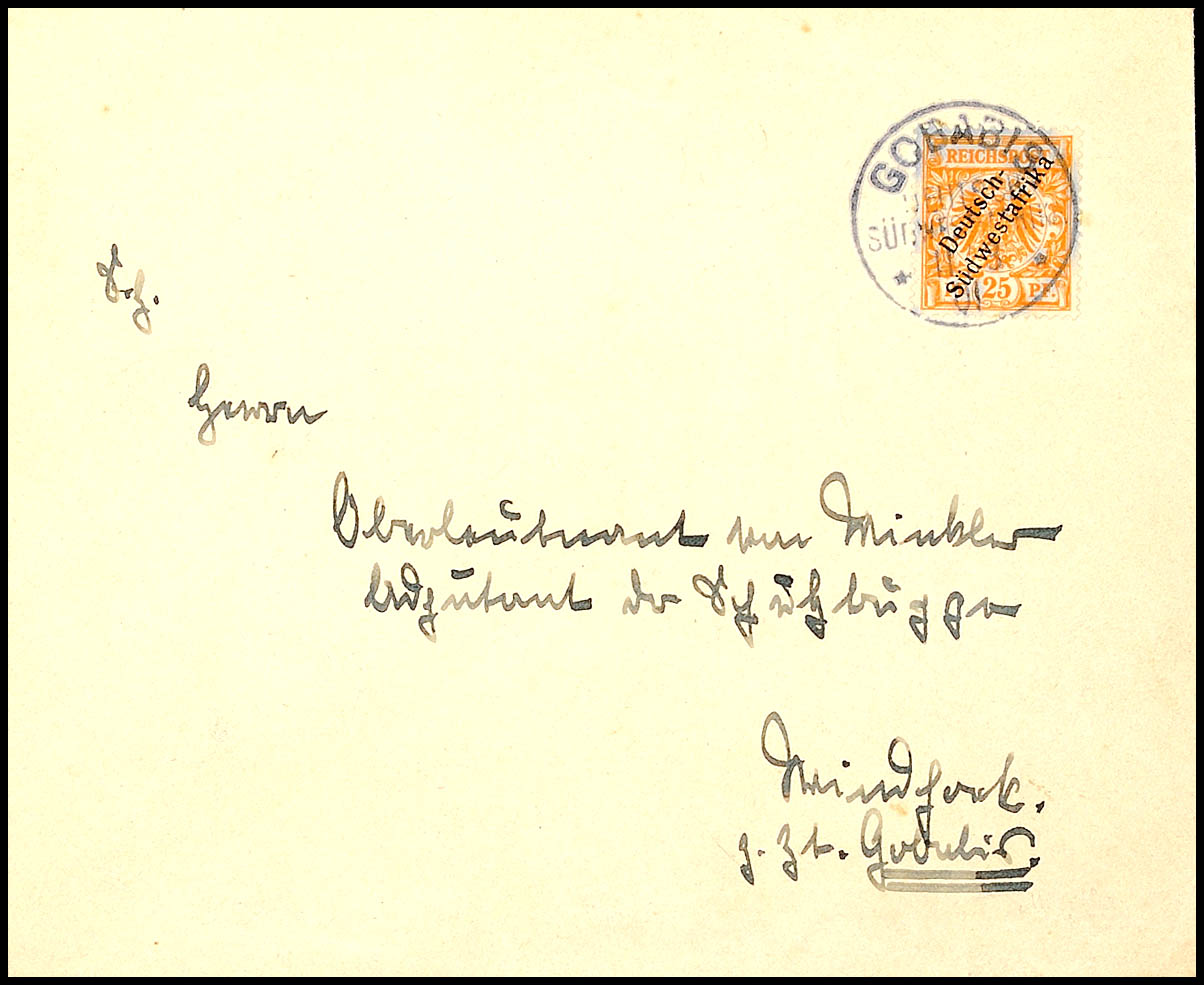 GOBABIS
REICHSPOST
Deutsch-
Südwestafrika
25 PF.
Sr.
Herrn
Oberleutnant von Winkler
Adjutant der Schutztruppe
Windhoek.
z. Zt. Gobabis.